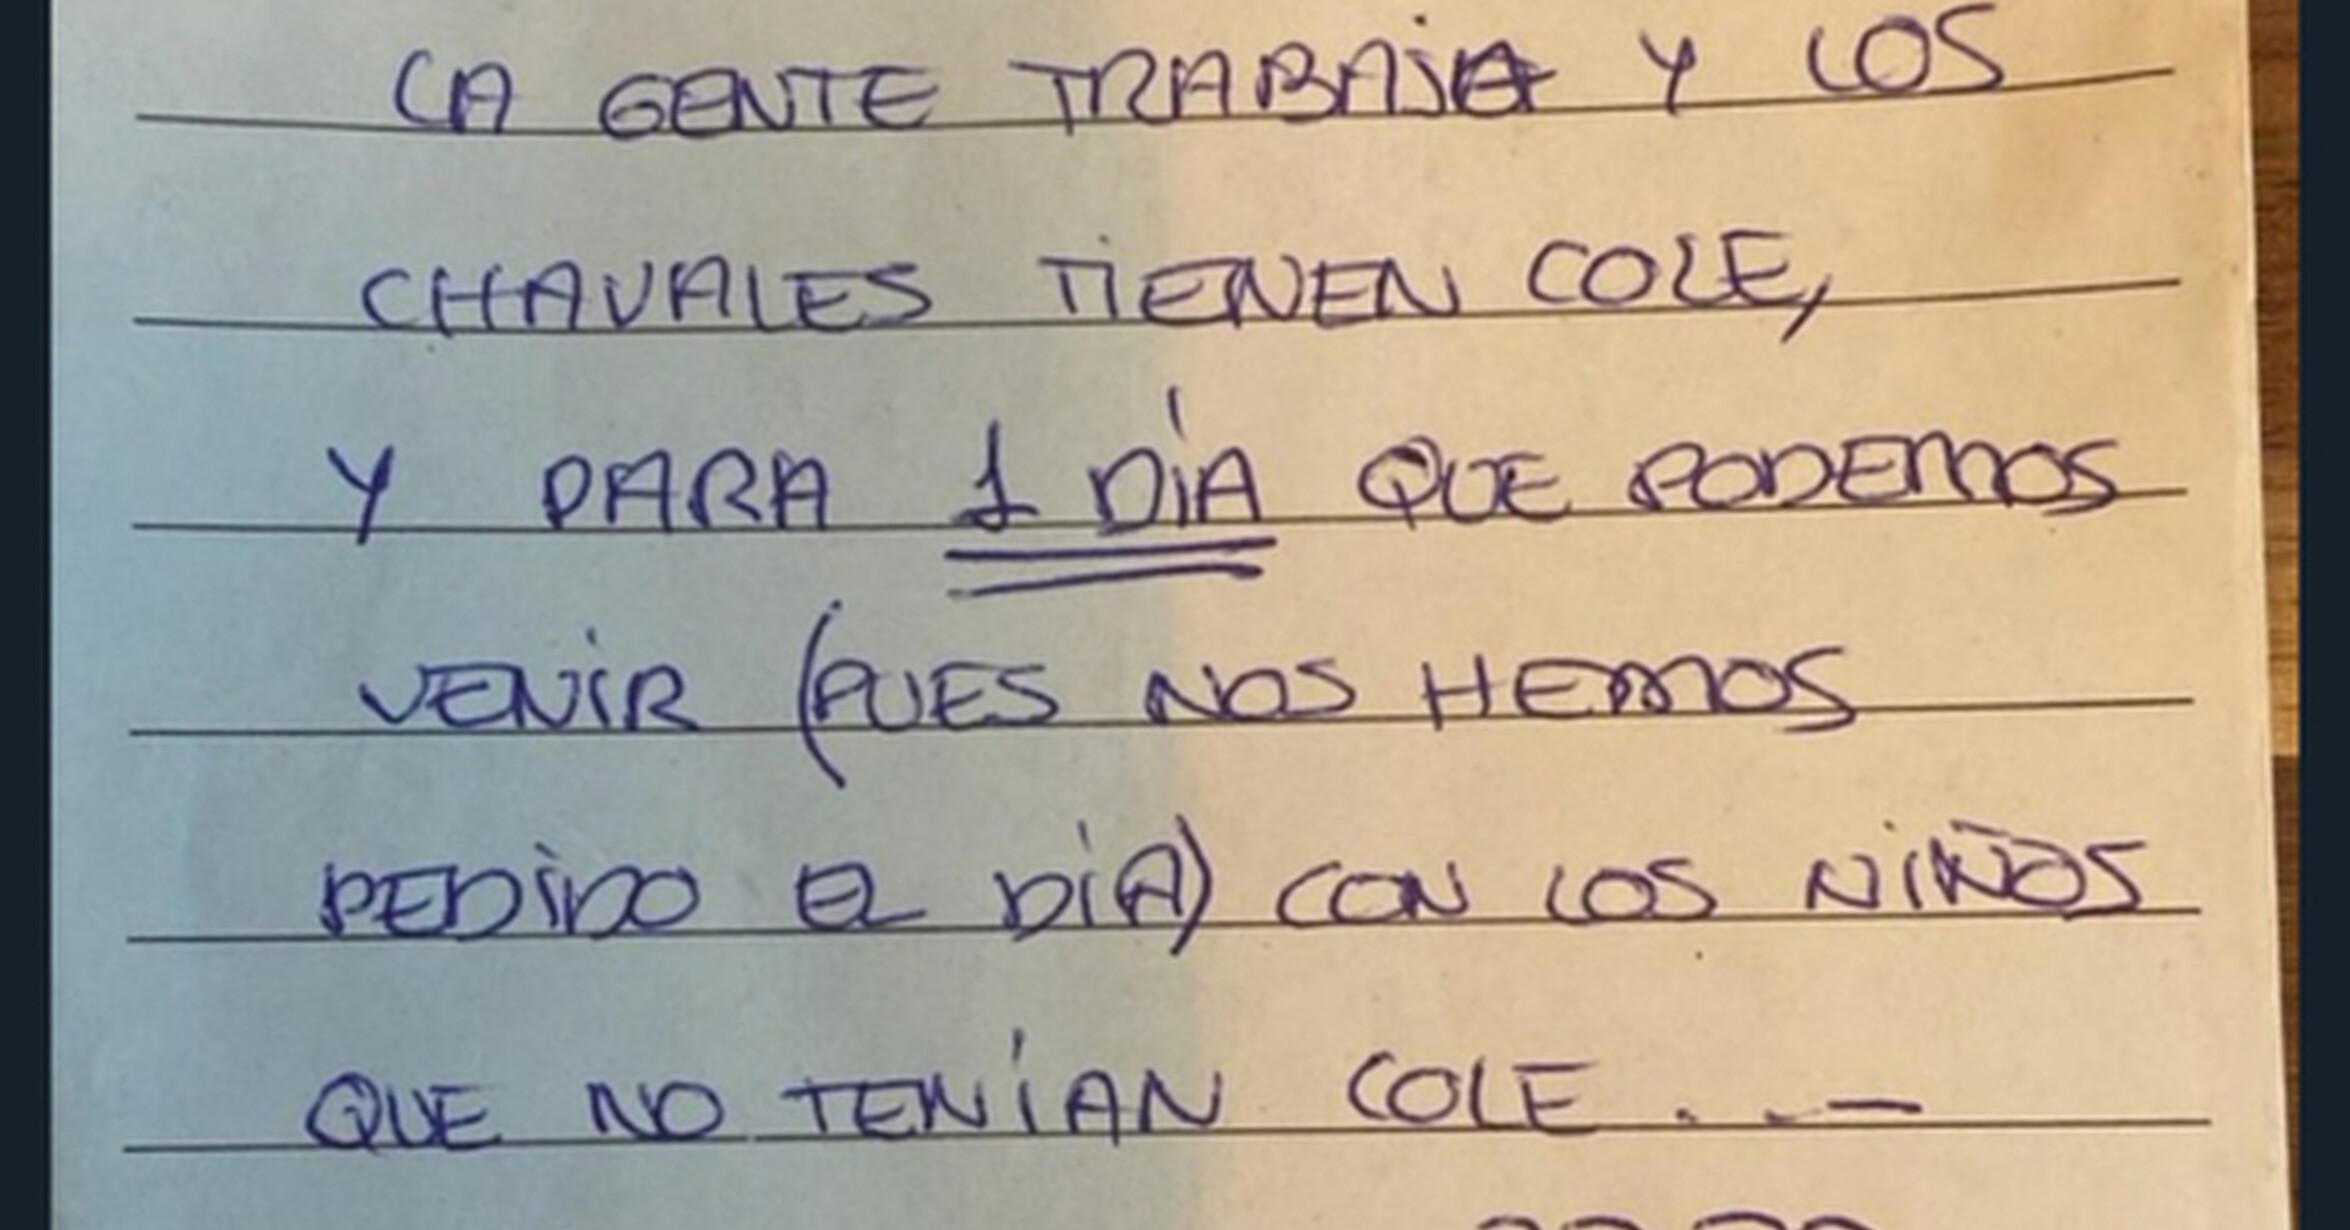 LA GENTE TRABAJA Y LOS
CHAVALES TIENEN COLE,
Y PARA 1 DÍA QUE PODEMOS
VENIR (PUES NOS HEMOS
PEDIDO EL DÍA) CON LOS NIÑOS
QUE NO TENÍAN COLE...